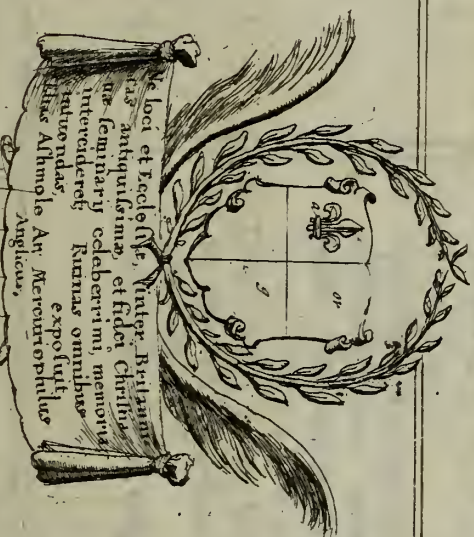 a
or
g
Ne loci et Ecclesiæ, (inter Britannic
cas antiquissimæ, et fidei Christia
næ seminarij celeberrimi, memoria
intercideret; Ruinas omnibus
intuendas, exposuit,
Elias Ashmole Ar. Mercuriophilus
Anglicus,